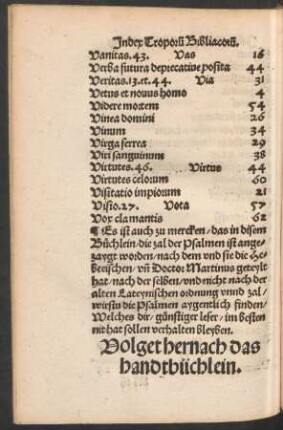 Index Troporū Bibliacorū.
Vanitas.43. Vas 16
Verba futura deprecative posita 44
Veritas.13.et.44. Via 31
Vetus et nouus homo 4
Videre mortem 54
Vinea domini 26
Vinum 34
Virga ferrea 29
Viri sanguinum 38
Virtutes.46. Virtus 44
Virtutes celorum 60
Visitatio impiorum 21
Visio.27. Vota 57
Vox clamantis 62
¶ Es ist auch zu mercken/das in disem
Büchlein/die zal der Psalmen ist ange-
zaygt worden/nach dem vnd sie die He-
breischen/vn̄ Doctor Martinus geteylt
hat/nach der selben/vnd nicht nach der
alten Lateynischen ordnung vnnd zal/
wirstu die Psalmen aygentlich finden/
Welches dir/günstiger leser/im besten
nit hat sollen verhalten bleyben.
Volget hernach das
handtbüchlein.